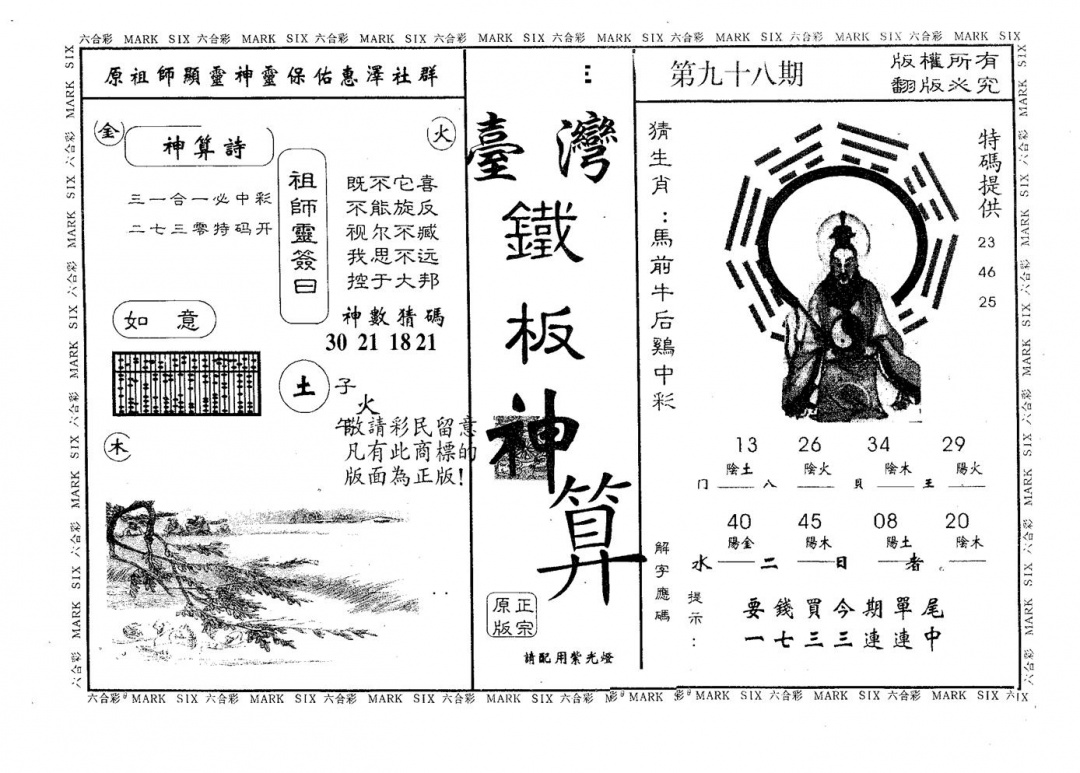 六合彩 MARK SIX 六合彩 MARK SIX 六合彩 MARK SIX 六合彩 MARK SIX 六合彩 MARK SIX 六合彩 MARK SIX 六合彩 MARK SIX 六合彩 MARK SIX
原祖師顯靈神靈保佑惠澤社群
金
神算詩
火
三一合一必中彩
二七三零特码开
祖師靈簽曰
既不它喜
不能旋反
视尔不臧
我思不远
控于大邦
神數猜碼
30 21 18 21
如意
土
子
火
午
敬請彩民留意
凡有此商標的
版面為正版!
木
臺灣
鐵
板
神
算
正宗
原版
請配用紫光燈
第九十八期
版權所有
翻版必究
猜生肖:馬前牛后鷄中彩
特碼提供
23
46
25
13 26 34 29
陰土 陰火 陰木 陽火
门 八 貝 王
40 45 08 20
陽金 陽木 陽土 陰木
水 二 日 者
解字應碼
提示:
要錢買今期單尾
一七三三連連中
六合彩 MARK SIX 六合彩 MARK SIX 六合彩 MARK SIX 六合彩 MARK SIX 六合彩 MARK SIX 六合彩 MARK SIX 六合彩 MARK SIX